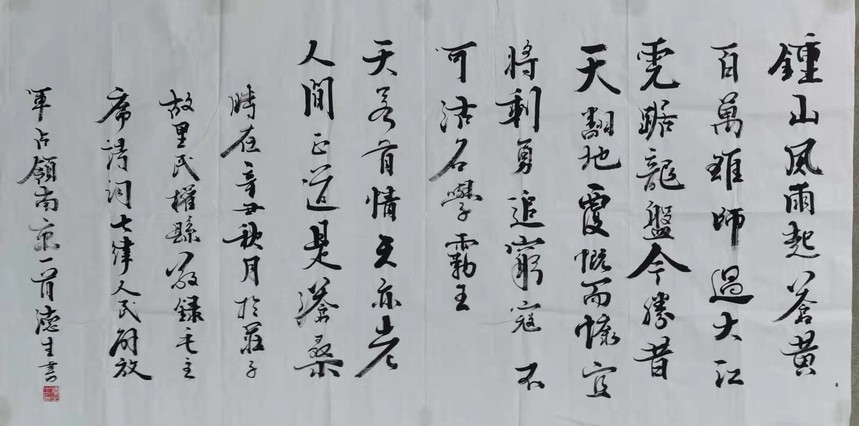 鍾山風雨起蒼黃
百萬雄師過大江
虎踞龍盤今勝昔
天翻地覆慨而慷宜
將剩勇追窮寇不
可沽名學霸王
天若有情天亦老
人間正道是滄桑
時在辛丑秋月於莊子
故里民權縣敬錄毛主
席詩詞七律人民解放
軍占領南京一首德生書